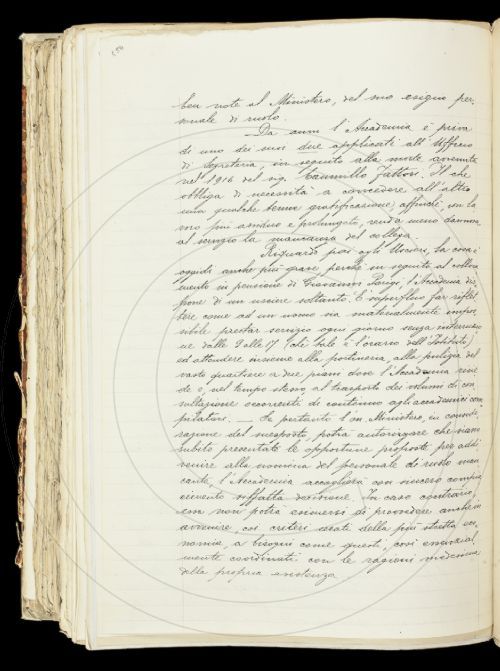 ben note al Ministero, del suo esiguo per-
sonale di ruolo.
Da anni l'Accademia è priva
di uno dei suoi due applicati all'Ufficio
di Segreteria, in seguito alla morte avvenuta
nel 1916 del sig. Cammillo Fattori. Il che
obbliga di necessità a concedere all'altro
una qualche tenue gratificazione, affinchè, con la
più assiduo e prolungato, renda meno dannosa
al servizio la mancanza del collega.
Riguardo poi agli Uscieri, la cosa è
oggidì anche più grave, perchè in seguito al colloca-
mento in pensione di Giovanni Parigi, l'Accademia dis-
pone di un usciere soltanto. È superfluo far riflet-
tere come ad un uomo sia materialmente impos-
sibile prestar servizio ogni giorno senza interruzio-
ne dalle 8 alle 17 (chè tale è l'orario dell'Istituto)
ed attendere insieme alla portineria, alla pulizia del
vasto quartiere a due piani dove l'Accademia risie-
de e, nel tempo stesso, al trasporto dei volumi di con-
sultazione occorrenti di continuo agli accademici com-
pilatori. — Se pertanto l'on. Ministero, in conside-
razione del suesposto, potrà autorizzare che siano
subito presentate le opportune proposte per addi-
venire alla nomina del personale di ruolo man-
cante, l'Accademia accoglierà con sincero compia-
cimento siffatta decisione. In caso contrario,
essa non potrà esimersi di provvedere anche in
avvenire, coi criteri dettati della più stretta eco-
nomia, a bisogni come questi, così essenzial-
mente coordinati con le ragioni medesime
della propria esistenza.